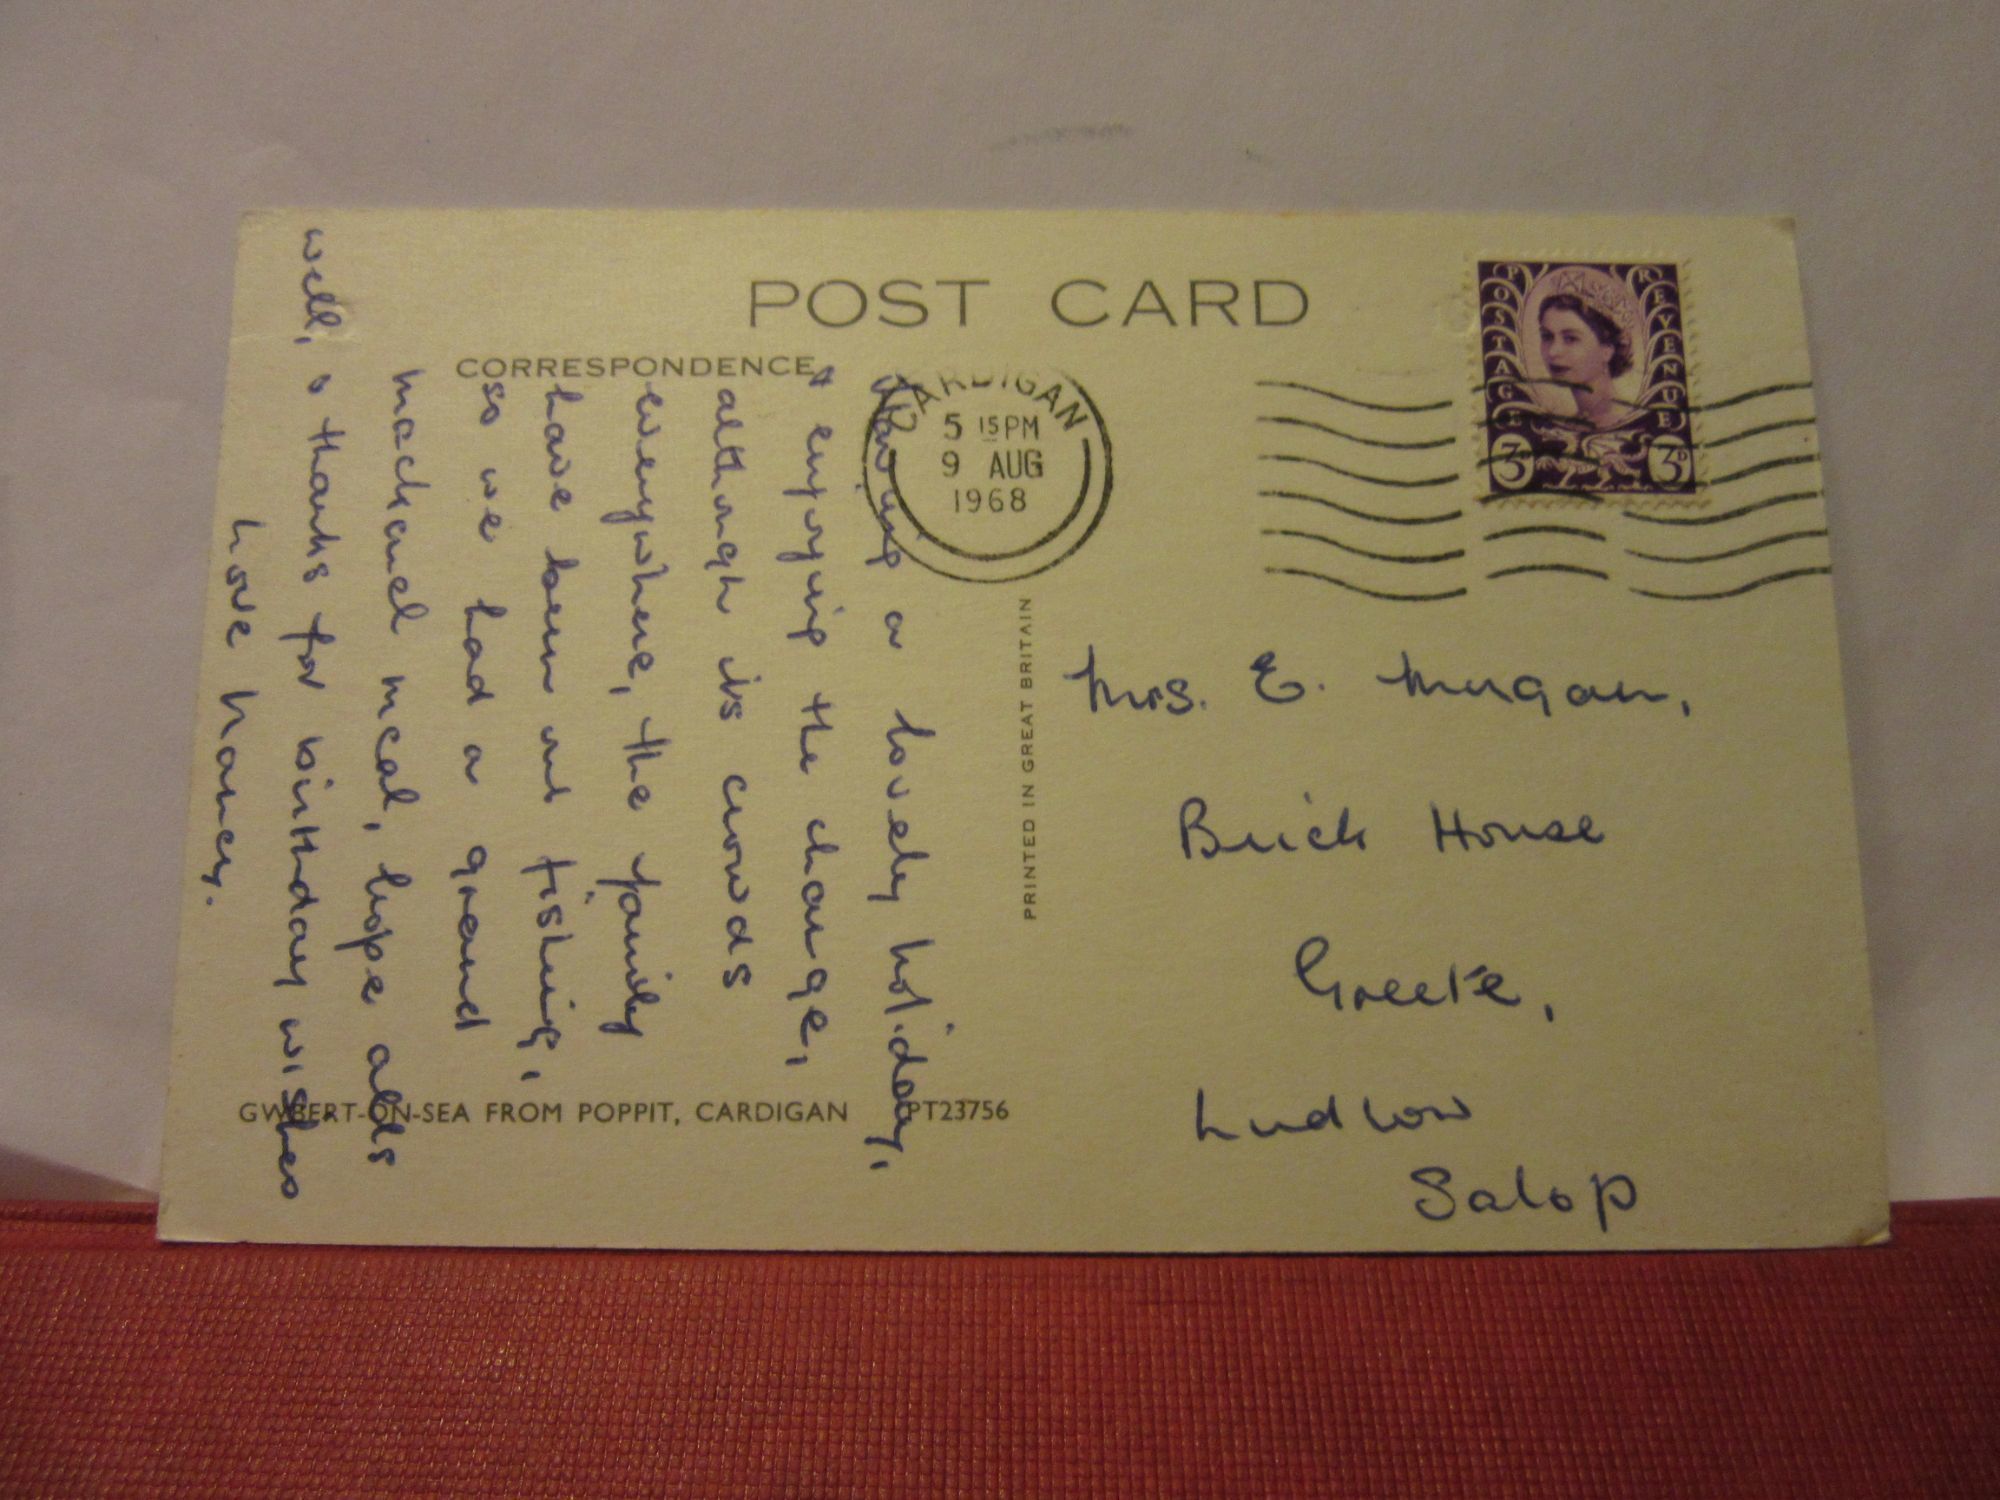 POST CARD
CORRESPONDENCE
POSTAGE REVENUE
3D 3D
CARDIGAN
5 15PM
9 AUG
1968
Having a lovely holiday,
& enjoying the change,
although its crowds
everywhere, the family
have been out fishing,
so we had a grand
mackerel meal, hope alds
well, & thanks for birthday wishes
love Nancy.
PRINTED IN GREAT BRITAIN
Mrs. E. Morgan,
Brick House
Greete,
Ludlow
Salop
GWBERT-ON-SEA FROM POPPIT, CARDIGAN PT23756